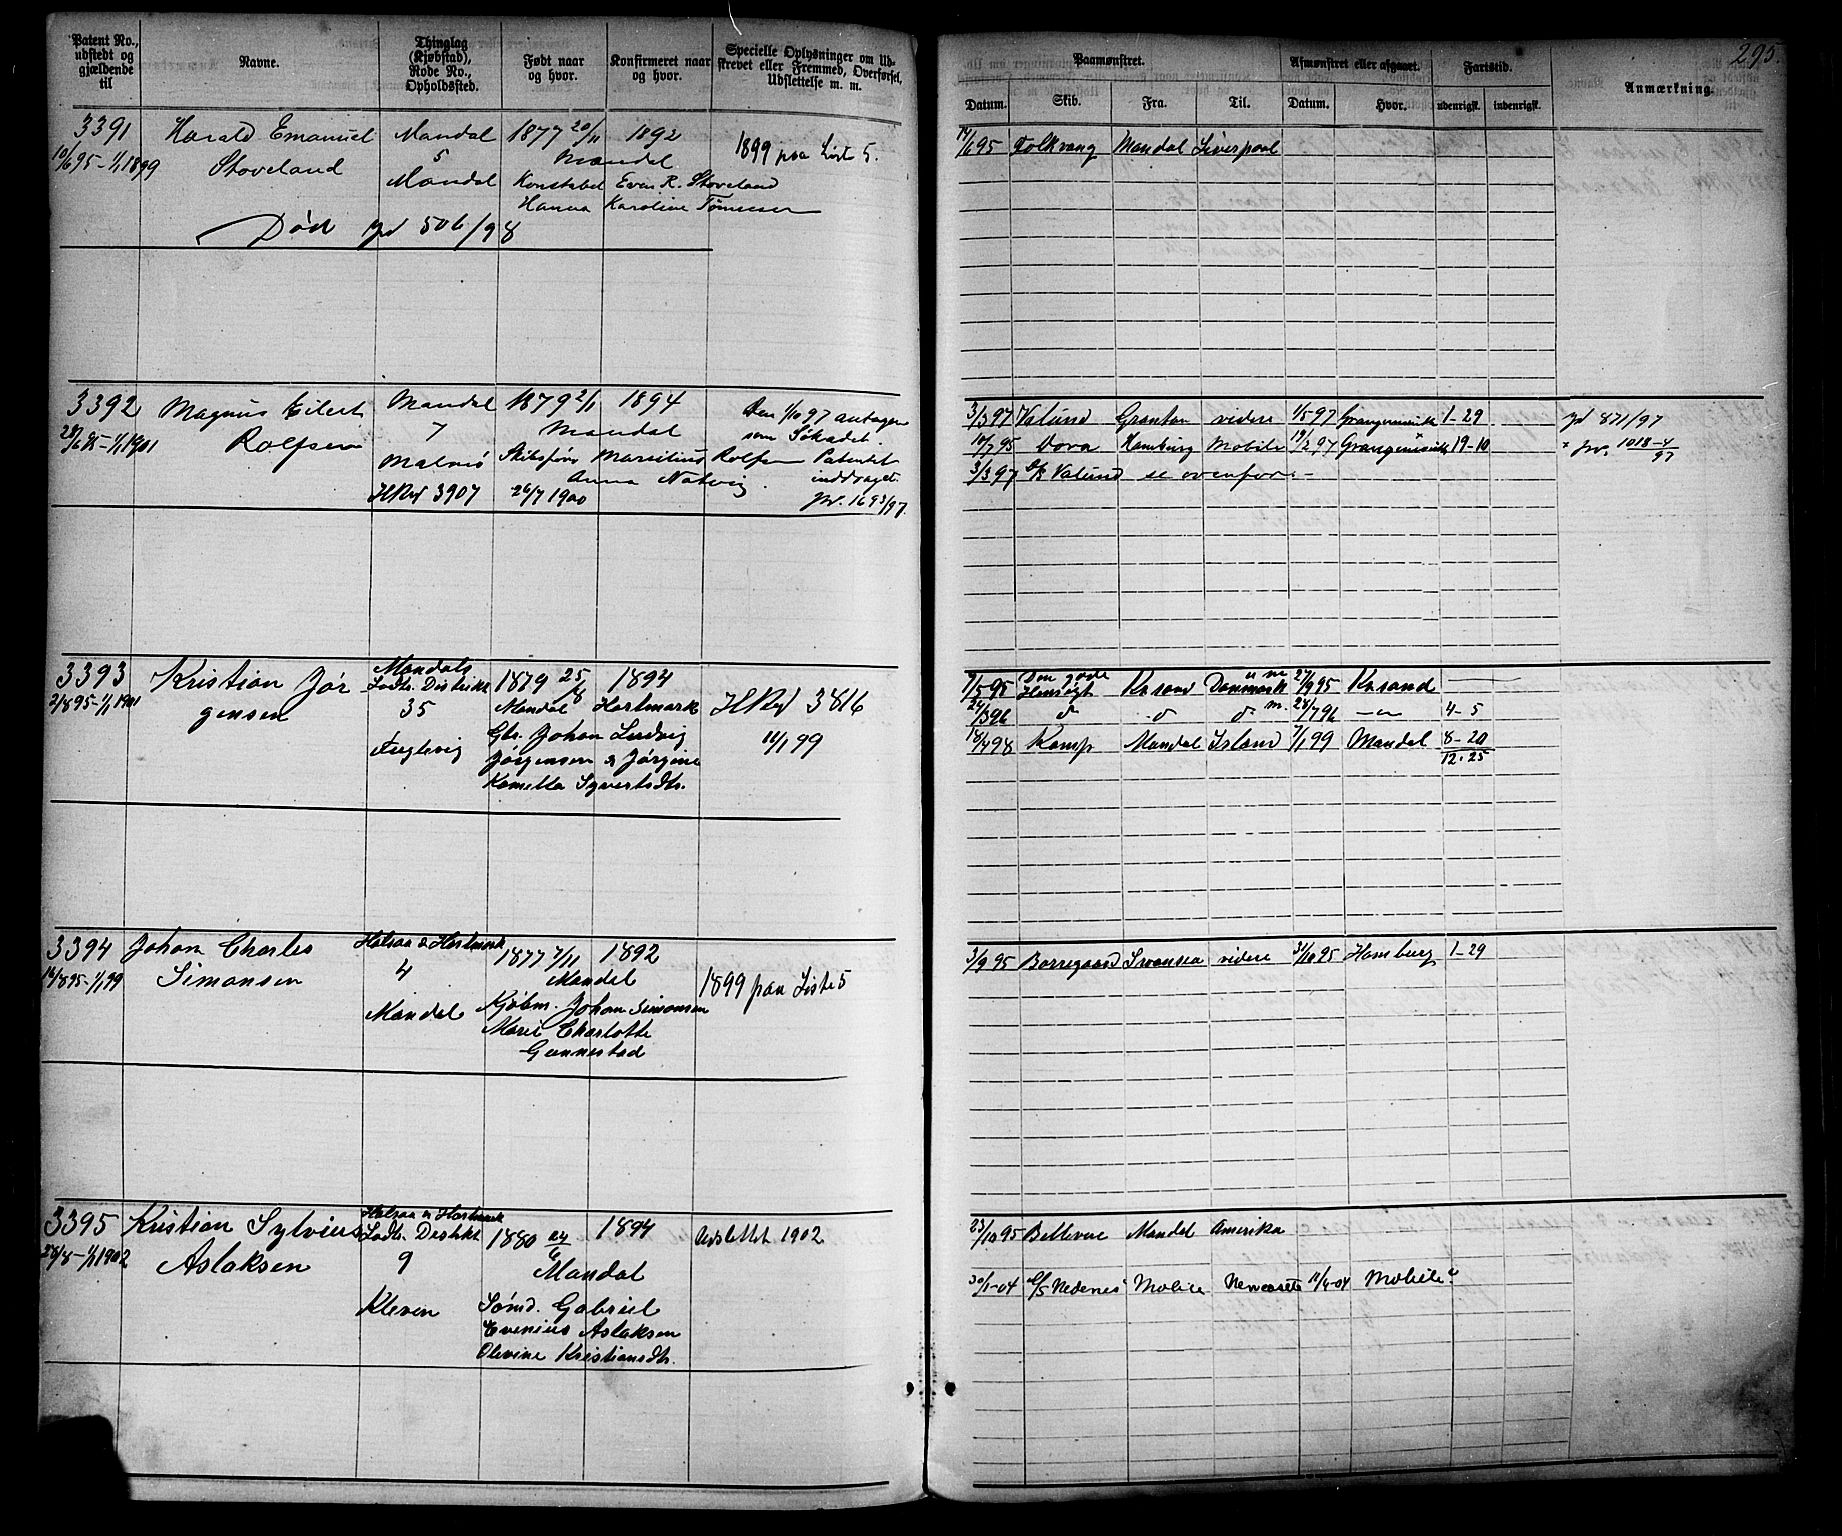 Patent No., udstedt og gjældende til
Navne.
Thinglag (Kjøbstad), Rode No., Opholdssted.
Født naar og hvor.
Konfirmeret naar og hvor.
Specielle Oplysninger om Udskrevet eller Fremmed, Overførsel, Udslettelse m. m.
Paamønstret.
Afmønstret eller afgaaet.
Fartstid.
Anmærkning.
295.
Datum.
Skib.
Fra.
Til.
Datum.
Hvor.
udenrigsk.
indenrigsk.
3391 Harald Emanuel Mandal 1877 20/11 1892
10/6 95 - 1/1 1899 Stoveland 5 Mandal 1899 paa Liste 5.
Mandal Konstabel Even R. Stoveland
Hanna Karoline Tønnesen
Død jvf 506/98
14/6 95 Folkvang Mandal Liverpool
3392 Magnus Eilert Mandal 1879 2/1 1894 Den 1/10 97 antagen
28/6 95 - 1/1 1901 Rolfsen 7 Mandal som Søkadet.
Malmø Skibsfører Marsilius Rolfsen Patentet
Anna Natvig. inddraget.
HRvf 3907 26/7 1900 Jvr. 1693/97.
3/3 97 Valund Granton videre 1/5 97 Grangemouth 1-29 jvf 871/97
10/7 95 Dova Hamburg Mobile 19/2 97 Grangemouth 19-10 " Jvr. 1018-4/97
3/3 97 S/S Valund se ovenfor. -
3393 Kristian Jør Mandals 1879 25/8 1894
2/8 95 - 1/1 1901 gensen Lodts. Distrikt Mandal Hartmark HRvf 3816
35 Gbr. Johan Ludvig 11/1 99
Fuglevig Jørgensen & Jørgine
Kametta Syvertsdtr.
7/5 95 Den gode Hensigt Krsand Danmark u m 27/9 95 Krsand
24/3 96 d d d m. 28/7 96 - " - 4-5
18/4 98 Kamp Mandal Island 7/1 99 Mandal 8-20
12.25
3394 Johan Charles Halsaa & Hartmark 1877 7/11 1892
16/8 95 - 1/1 99 Simonsen 4 Mandal 1899 paa Liste 5
Mandal Kjøbm. Johan Simonsen
Marie Charlotte
Gunnestad
3/9 95 Borregaard Swansea videre 31/10 95 Hamburg 1-29
3395 Kristian Sylvius Halsaa & Hartmark 1880 24/6 1894 Udslettet 1902
28/8 - 1/1 1902 Aslaksen Lodts. Distrikt Mandal
9
Kleven Sømd. Gabriel
Evenius Aslaksen
Olevine Kristiansdtr.
23/10 95 Bellevue Mandal Amerika
30/1-04 S/S Nedenes Mobile Newcastle 11/4-04 Mobile